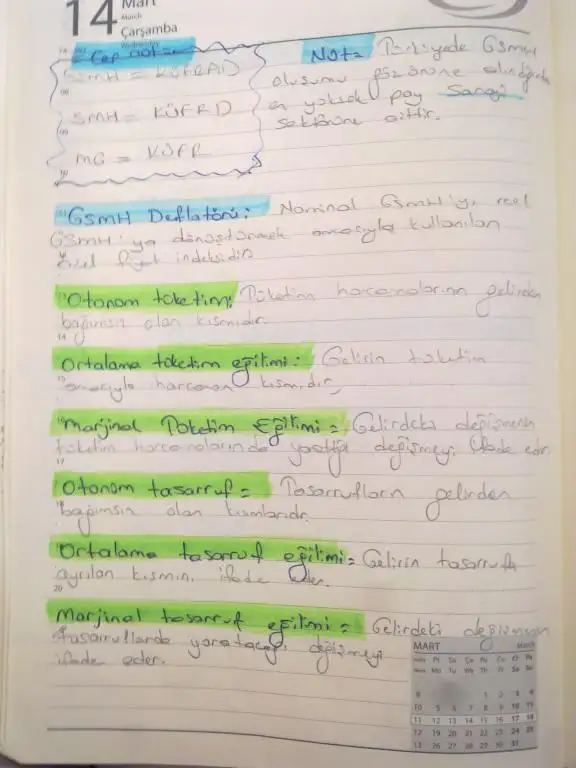 14
Mart
March
Çarşamba
Wednesday
Cep not =
GSMH = KÜFRAD
SMH = KÜFRD
MG = KÜFR
Not = Türkiyede GSMH
oluşumu göz önüne alındığında
en yüksek pay Sanayi
sektörüne aittir.
GSMH Deflatörü: Nominal GSMH'yı reel
GSMH'ya dönüştürmek amacıyla kullanılan
özel fiyat indeksidir
Otonom tüketim: Tüketim harcamalarının gelirden
bağımsız olan kısmıdır.
Ortalama tüketim eğilimi: Gelirin tüketim
amacıyla harcanan kısmıdır.
Marjinal Tüketim Eğilimi = Gelirdeki değişmenin
tüketim harcamalarında yarattığı değişmeyi ifade eder
Otonom tasarruf = Tasarrufların gelirden
bağımsız olan kısımlarıdır.
Ortalama tasarruf eğilimi = Gelirin tasarrufa
ayrılan kısmını ifade eder.
Marjinal tasarruf eğilimi = Gelirdeki değişmenin
tasarruflarda yaratacağı değişmeyi
ifade eder.
MART March
Pt Sa Ça Pe Cu Ct Pa
Mo Tu We Th Fr Sa Su
9 1 2 3 4
10 5 6 7 8 9 10 11
11 12 13 14 15 16 17 18
12 19 20 21 22 23 24 25
13 26 27 28 29 30 31